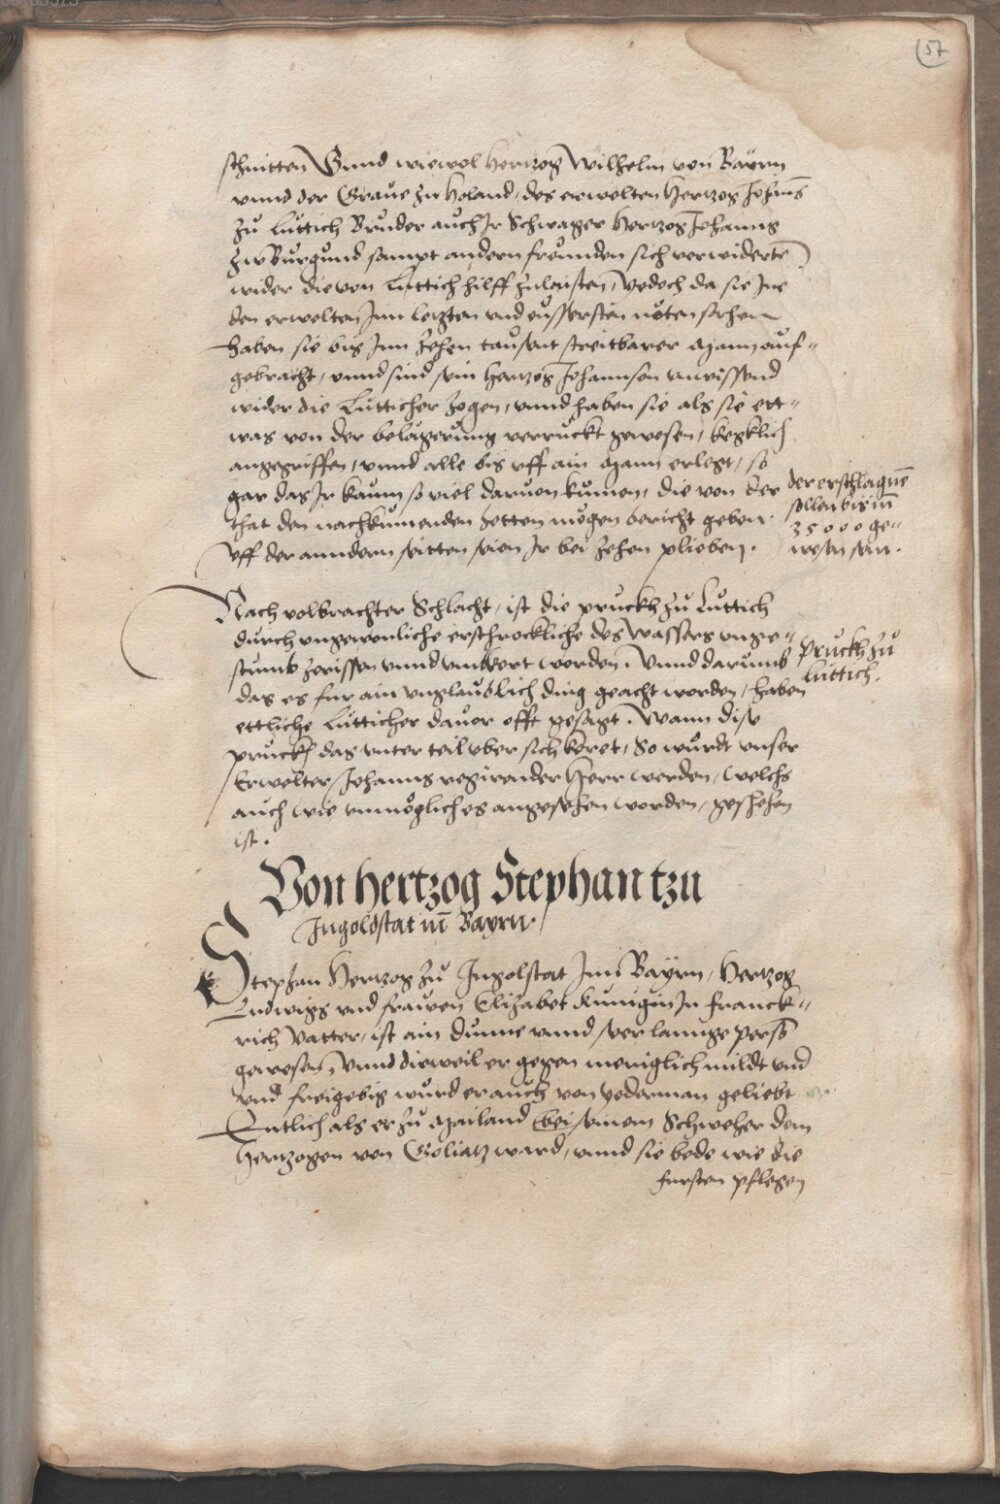 57
schnitten Vnnd wiewol Hertzog Wilhelm von Bayrn
vnnd der Graue zu Holand, des erwelten Hertzog Johans
zu Luttich Bruder auch Ir Schwager Hertzog Johanns
zu Burgund sampt andern freunden sich verwiderte
wider die von Luttich hilff zulaisten, Yedoch da sie Ine
den erwelten Inn letzten vnd eussersten nöten sahen
haben sie bis Inn zehen tausent streitbarer Mann auf-
gebracht, vnnd sind sein Hertzog Johannsen vnwissend
wider die Lutticher zogen, vnnd haben sie als sie ett-
was von der belägerung verruckt gewesen, kecklich
angegriffen, vnnd alle bis vff ain Mann erlegt, so
gar das Ir kaum so viel daruon kumen, die von der
that den nachkumenden hetten mögen bericht geben.
Vff der anndern seitten seien Ir bei zehen plieben.
der erschlagne
sollen bis in
35000 ge-
wesn sein.
Nach volbrachter Schlacht, ist die pruckh zu Luttich
durch vngewonliche erschrockliche des Wassers vnge-
stumb zerissen vnnd vmbkert worden. Vnnd darumb
das es fur ain vnglaublich ding geacht worden, haben
ettliche Lutticher dauor offt gesagt. Wann dise
pruckh das vnter teil vber sich keret, So wurdt vnser
Erwelter Johanns regirender Herr werden, welchs
auch wie vnmöglich es angesehen worden, geschehen
ist.
Pruckh zu
Luttich.
Von hertzog Stephan tzu
Ingoldstat in Bayrn.
Stephan Hertzog zu Ingolstat Inn Bayrn, Hertzog
Ludwigs vnd frauen Elizabet Kunigin In Franck-
rich Vatter, ist ain dunne vnnd langge perso
gewesen, Vnnd dieweil er gegen meniglich mildt vnd
vnd freigebig wurd er auch von yederman geliebt
Entlich als er zu Mailand bei seinem Schweher dem
Hertzogen von Goliatz ward, vnnd sie bede wie die
fursten pflegen